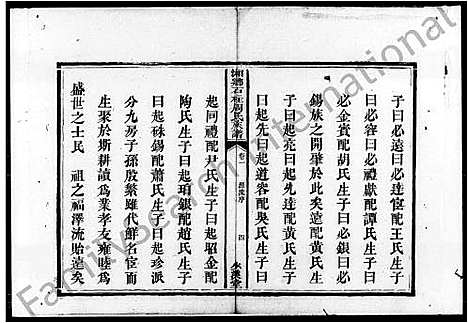 子曰必遠曰必達宦配王氏生子
曰必容曰必禮獻配譚氏生子曰
必金賓配胡氏生子曰必銀曰必
錫族之開肇於此矣遠配黃氏生
子曰起亮曰起先達配黃氏生子
曰起先曰起道容配吳氏生子曰
周氏家譜
卷一
四
起同禮配尹氏生子曰起昭金配
陶氏生子曰起瑣銀配趙氏生子
曰起硃錫配蕭氏生子曰起珍派
分九房子孫殷繁雖代鮮名宦而
生聚於斯耕讀為業孝友睦婣為
盛世之士民 祖之福澤流貽遠矣
FamilySearch International